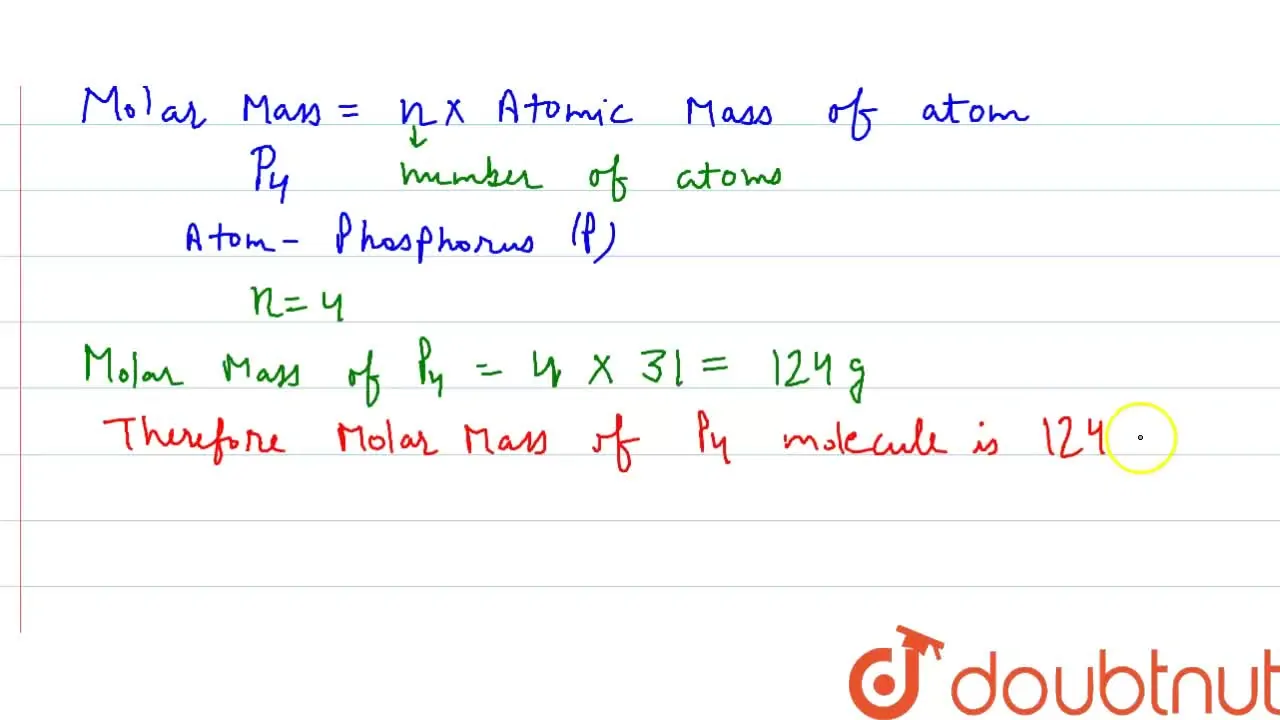 Molar Mass = n x Atomic Mass of atom
↓
P4 number of atoms
Atom - Phosphorus (P)
n = 4
Molar Mass of P4 = 4 x 31 = 124 g
Therefore Molar Mass of P4 molecule is 124
doubtnut